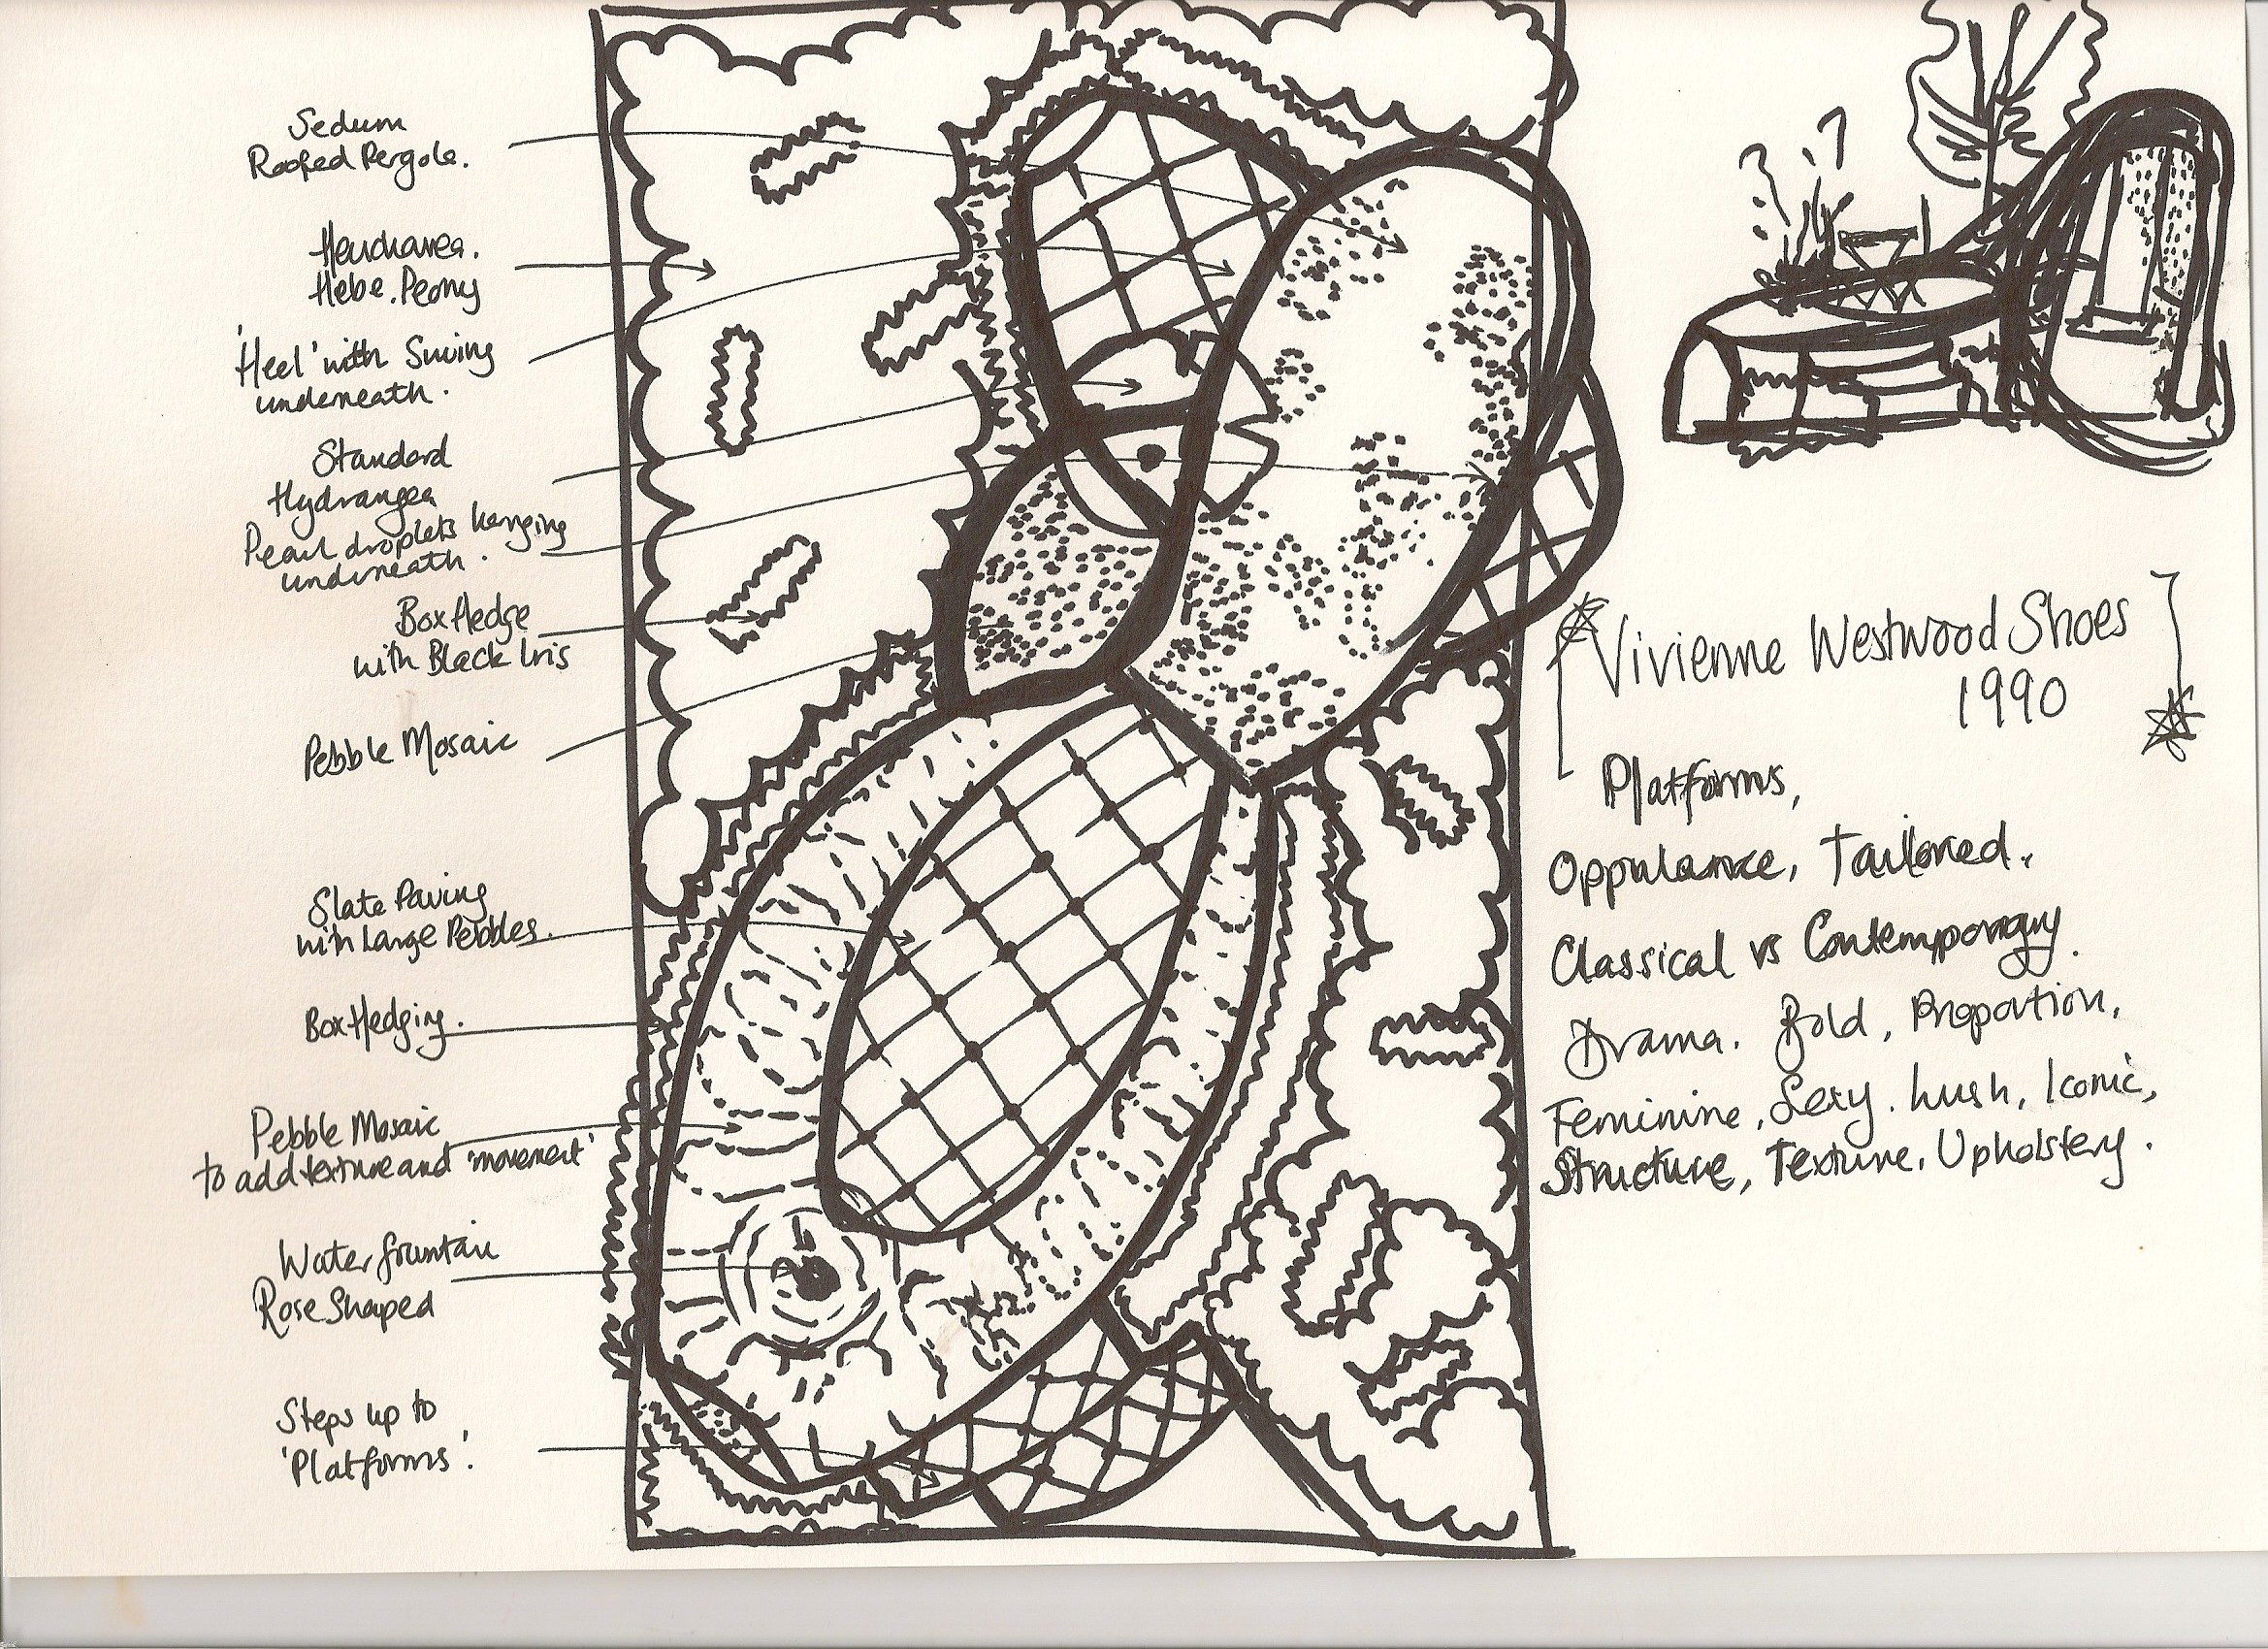 Sedum
Roofed Pergola.
Heucharea.
Hebe. Peony
'Heel' with Swing
underneath.
Standard
Hydrangea
Pearl droplets hanging
underneath.
Box Hedge
with Black Iris
Pebble Mosaic
Slate Paving
with Large Pebbles.
Box Hedging.
Pebble Mosaic
to add texture and 'movement'
Water fountain
Rose Shaped
Steps up to
'Platforms'.
Vivienne Westwood Shoes
1990
Platforms,
Oppulance, Tailored.
Classical vs Contemporary.
Drama. Bold, Proportion,
Feminine, Sexy. Lush, Iconic,
Structure, Texture, Upholstery.